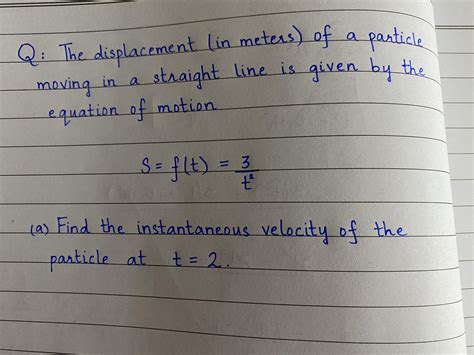 Q: The displacement (in meters) of a particle
moving in a straight line is given by the
equation of motion
S = f(t) = 3/t²
(a) Find the instantaneous velocity of the
particle at t = 2.